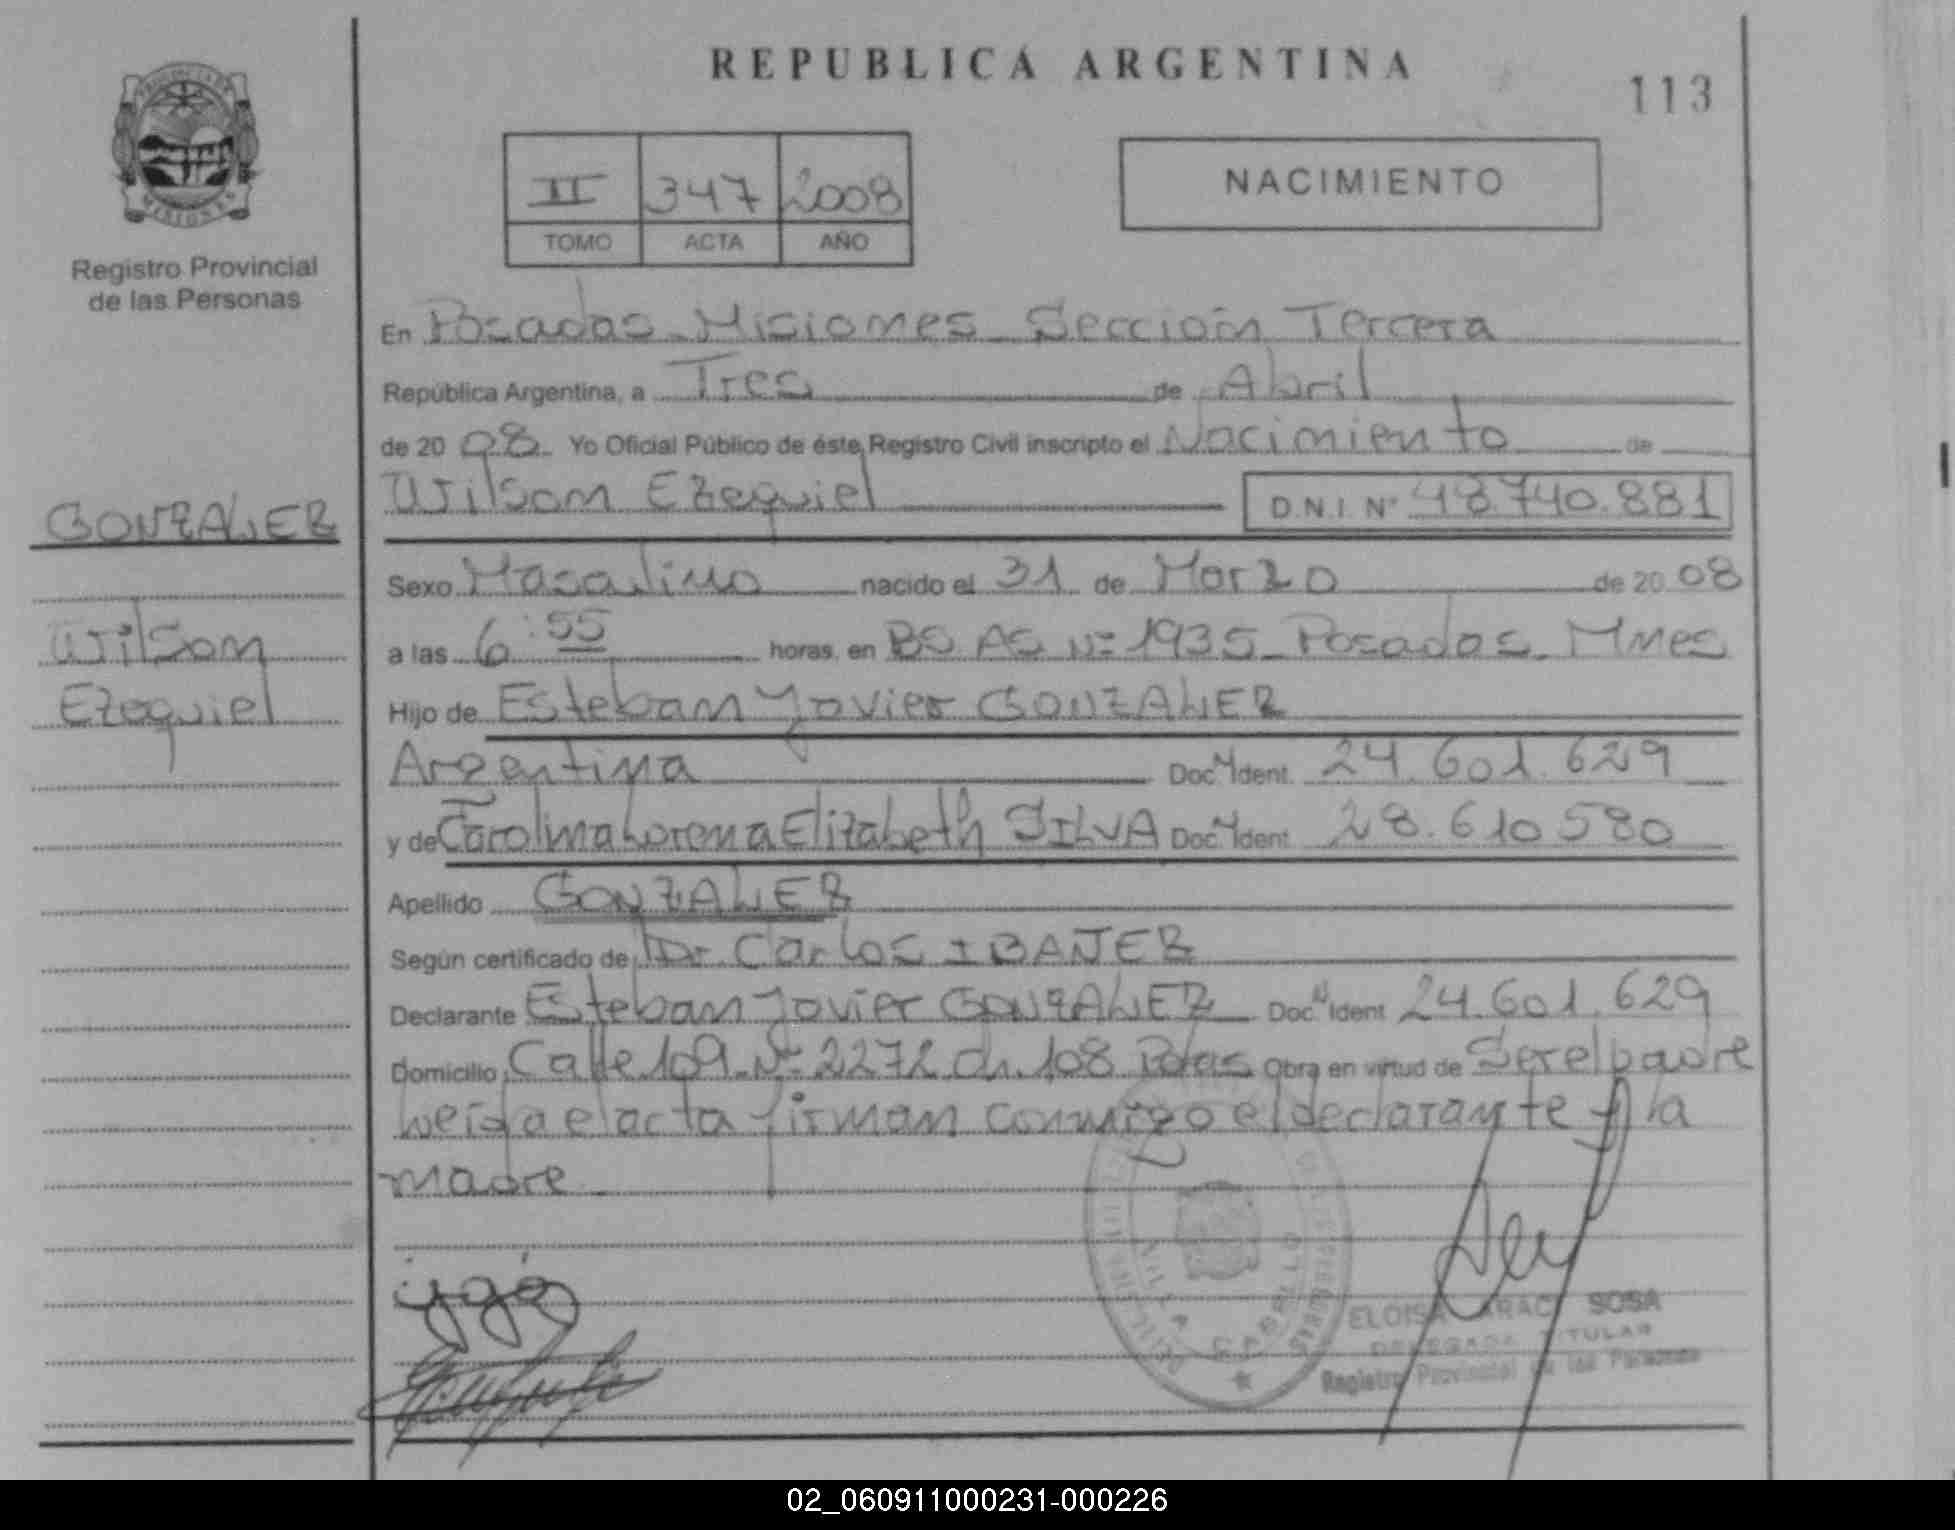 REPUBLICA ARGENTINA
113
PROVINCIA DE
MISIONES
Registro Provincial
de las Personas
II 347 2008
TOMO ACTA AÑO
NACIMIENTO
En Posadas Misiones Sección Tercera
República Argentina, a Tres de Abril
de 20 08 Yo Oficial Público de éste Registro Civil inscripto el Nacimiento de
Wilson Ezequiel D.N.I. Nº 48.740.881
GONZALEZ
Sexo Masculino nacido el 31 de Marzo de 20 08
Wilson
a las 6:55 horas, en BS AS Nº 1935 Posadas Mnes
Ezequiel
Hijo de Esteban Javier GONZALEZ
Argentina Doc. Ident. 24.601.629
y de Carolina Lorena Elizabeth SILVA Doc. Ident. 28.610580
Apellido GONZALEZ
Según certificado de Dr. Carlos IBAÑEZ
Declarante Esteban Javier GONZALEZ Doc. Ident 24.601.629
Domicilio Calle 109 Nº 2272 Ch. 108 Pdas Obra en virtud de Ser el padre
Leída el acta firman conmigo el declarante y la
madre
VILLA CABELLO
ELOISA ARACI SOSA
DELEGADA TITULAR
Registro Provincial de las Personas
02_060911000231-000226